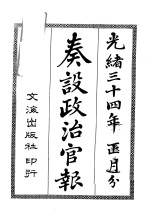 光緒三十四年 正月分
奏設政治官報
文海出版社 印行